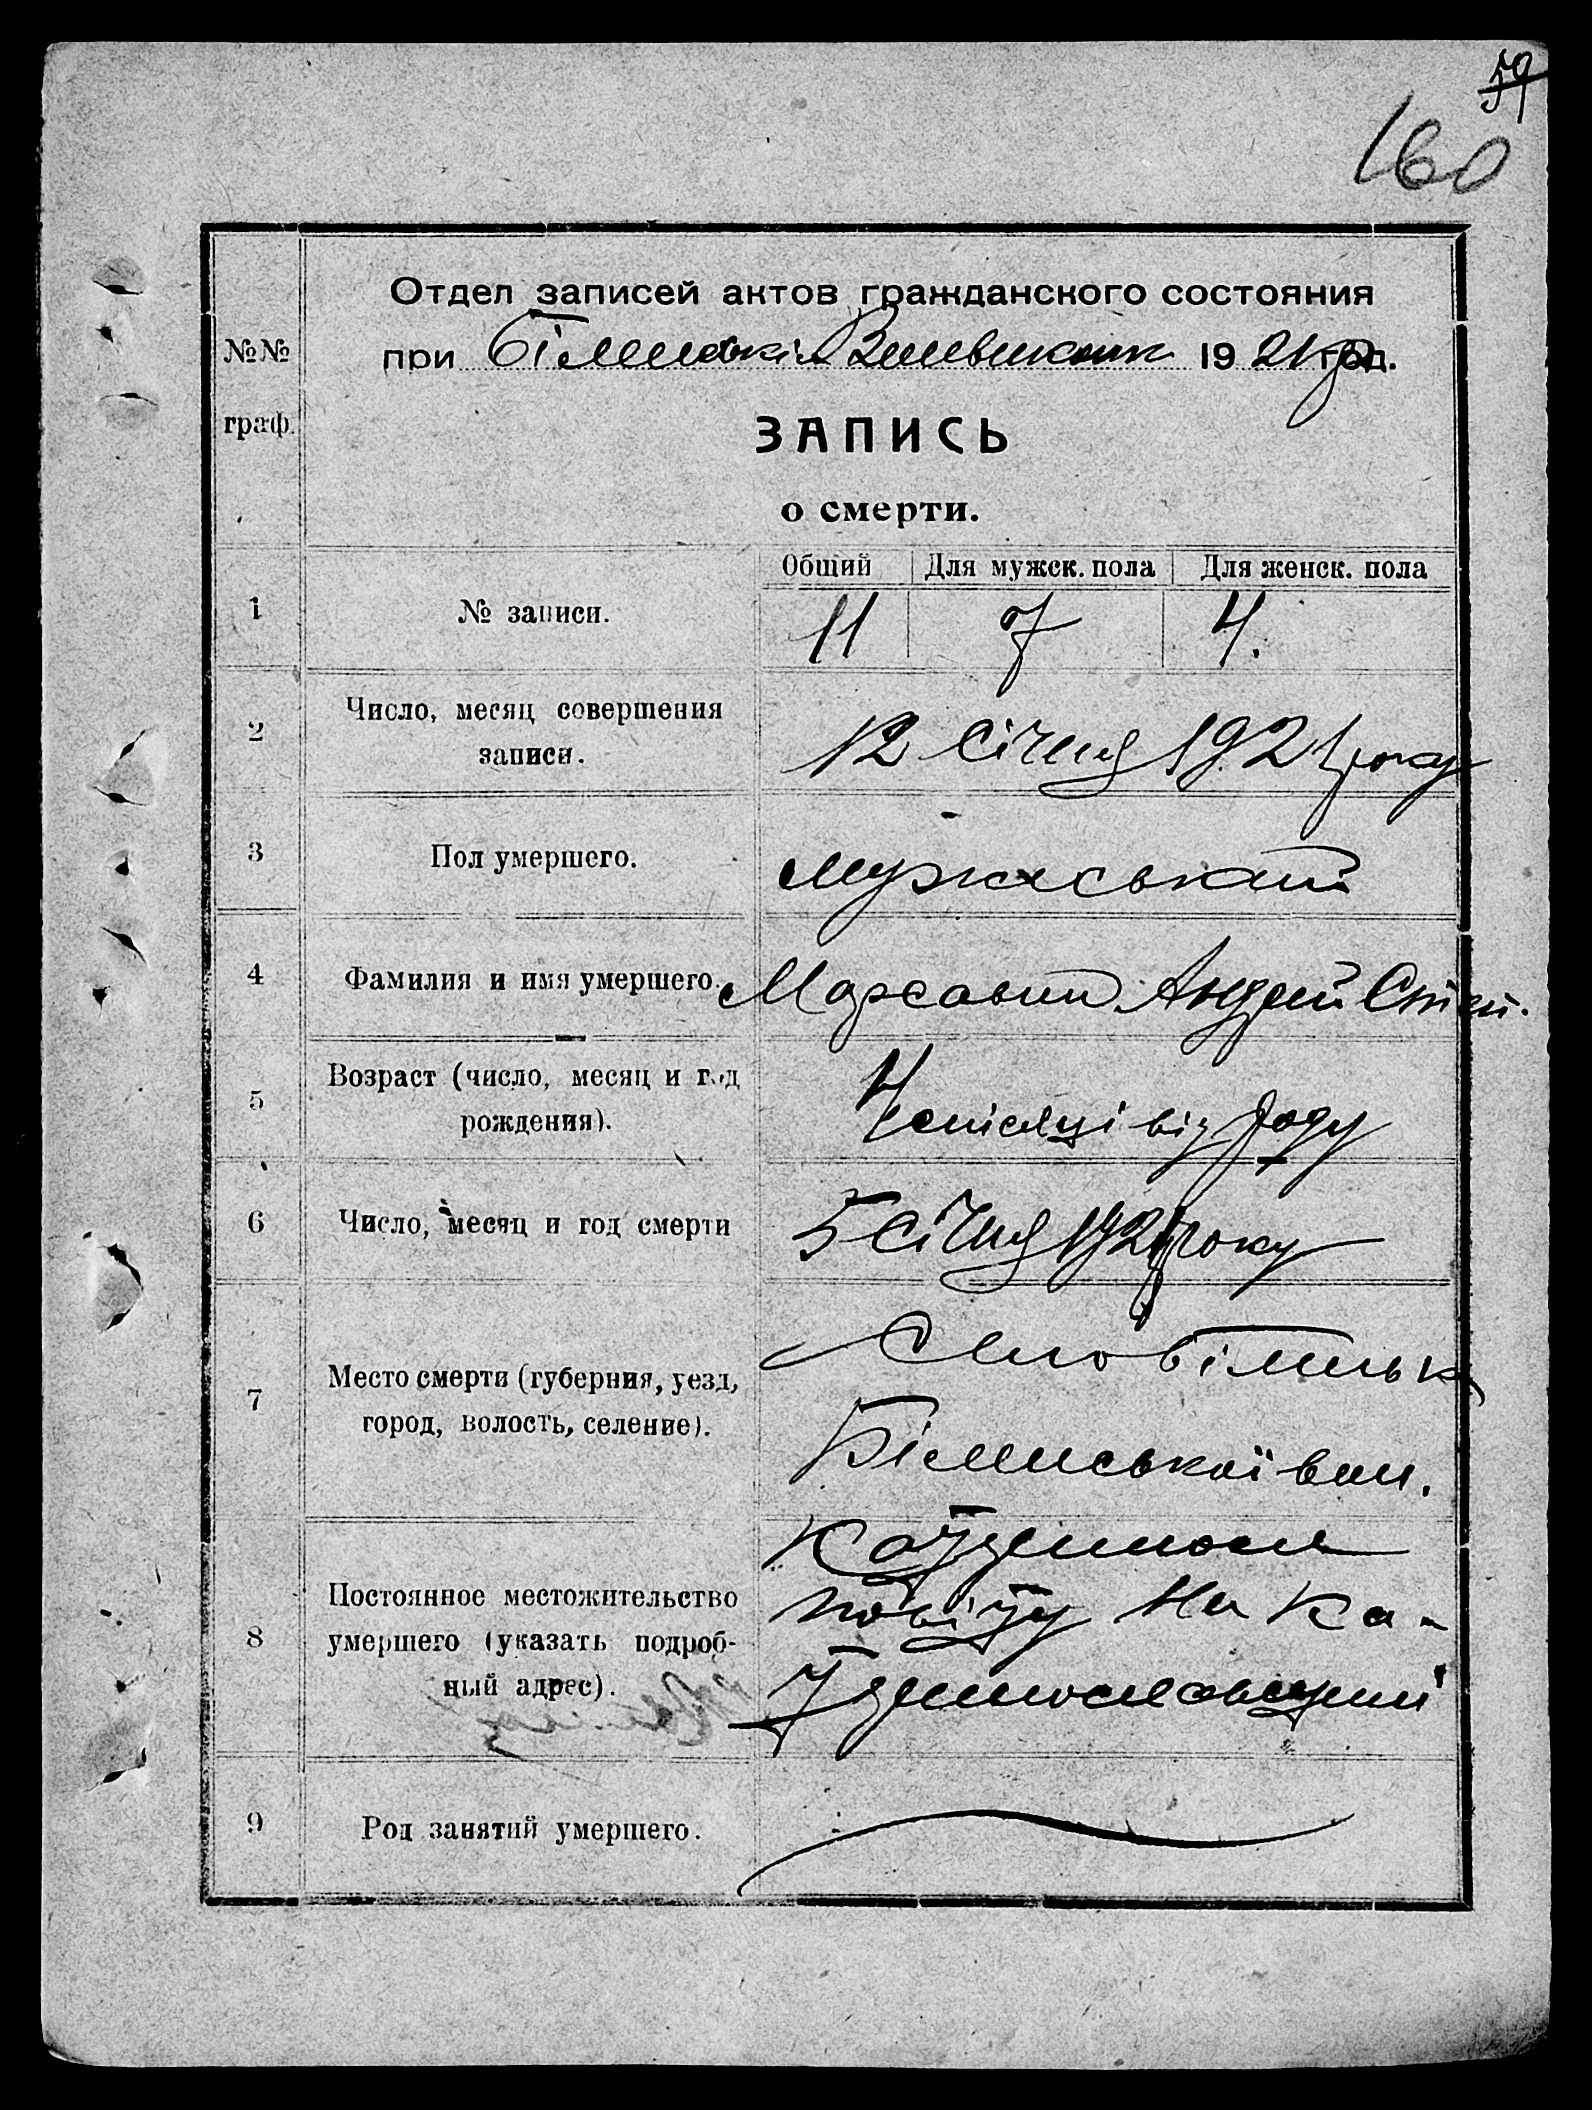 59
160
Отдел записей актов гражданского состояния
№№
при 1921 р год.
граф.
ЗАПИСЬ
о смерти.
Общий Для мужск. пола Для женск. пола
1 № записи. 11 7 4.
2 Число, месяц совершения 12 січня 1921 року
записи.
3 Пол умершего. мужеський
4 Фамилия и имя умершего. Андрей
5 Возраст (число, месяц и год 4 місяці від роду
рождения).
6 Число, месяц и год смерти 5 січня 1921 року
Село
7 Место смерти (губерния, уезд,
город, волость, селение).
вол.
8 Постоянное местожительство повіту на Ка-
умершего (указать подроб-
ный адрес).
9 Род занятий умершего.